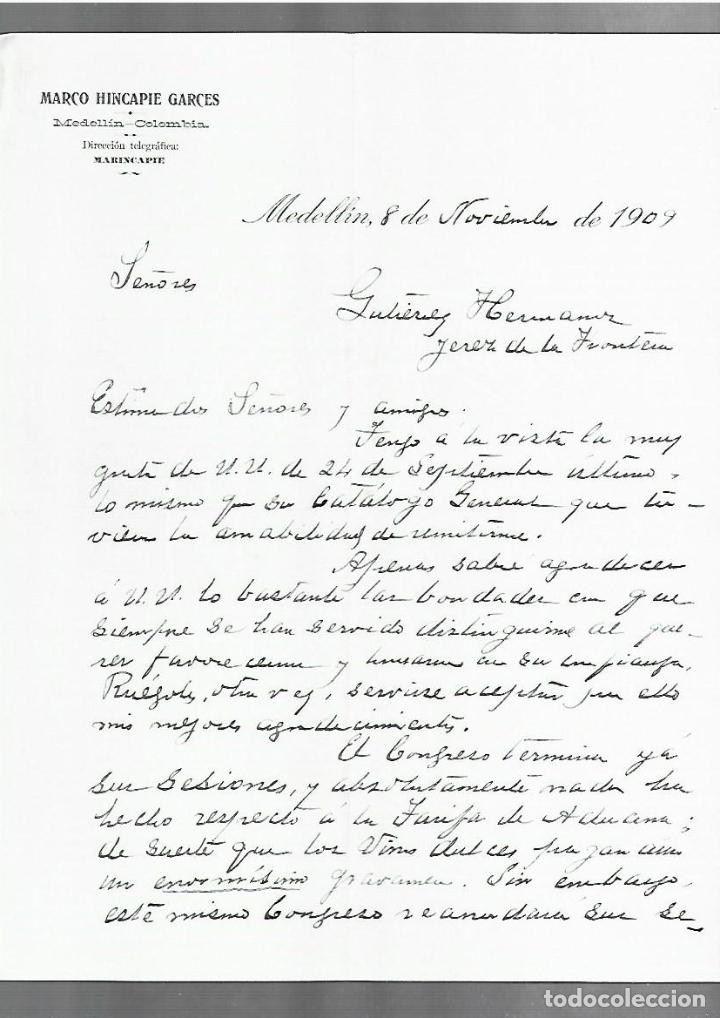 MARCO HINCAPIE GARCES
Medellín-Colombia.
Dirección telegráfica:
MARINCAPIE
Medellín, 8 de Noviembre de 1909
Señores
Gutiérrez Hermanos
Jerez de la Frontera
Estimados Señores y amigos.
Tengo á la vista la muy
grata de U.U. de 24 de Septiembre último,
lo mismo que su Catálogo General que tu-
vieron la amabilidad de remitirme.
Apenas sabré agradecer
á U.U. lo bastante las bondades con que
siempre se han servido distinguirme al que-
rer favorecerme y honrarme con su confianza.
Ruégoles, otra vez, servirse aceptar por ello
mis mejores agradecimientos.
El Congreso termina yá
sus sesiones, y absolutamente nada ha
hecho respecto á la Tarifa de Aduana;
de suerte que los Vinos dulces pagan aún
un enormísimo gravamen. Sin embargo,
este mismo Congreso reanudará sus se-
todocoleccion